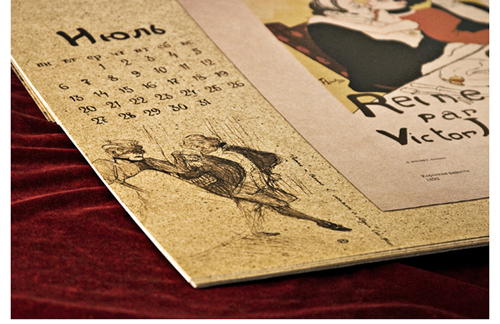 Июль
пн вт ср чт пт сб вс
1 2 3 4 5
6 7 8 9 10 11 12
13 14 15 16 17 18 19
20 21 22 23 24 25 26
27 28 29 30 31
Reine
par
Victor J
Королева радости
1892